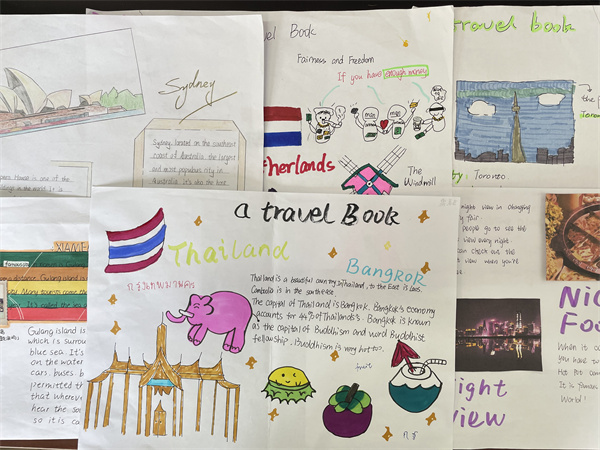 Sydney
Sydney, located on the southeast
coast of Australia, the largest
and most populous city in
Australia. It's also the
House is one of the
in the world. It is
vel Book
Fairness and Freedom
If you have enough money
man
man
therlands
The
Windmill
travel book
the
Toronto
Toronto
night view in Chongqing
people go to see the
view every night
can check out the
view when you're
XIAMEN
distance. Gulang island is
Many tourists
It's called the
Gulang island is
which is surrou
blue sea. It's
on the water
cars, buses b
permitted th
that wherev
hear the so
so it is ca
a travel Book
Thailand
Bangkok
Thailand is a beautiful
to the East is Laos
Cambodia is in the southeast
The capital of Thailand is Bangkok. Bangkok's economy
accounts for 44% of Thailand's. Bangkok is known
as the capital of Buddhism and word Buddhist
fellowship. Buddhism is very hot to.
fruit
Nig
Foo
When it co
you have to
Hot Pot
It is famous
World!
ight
view